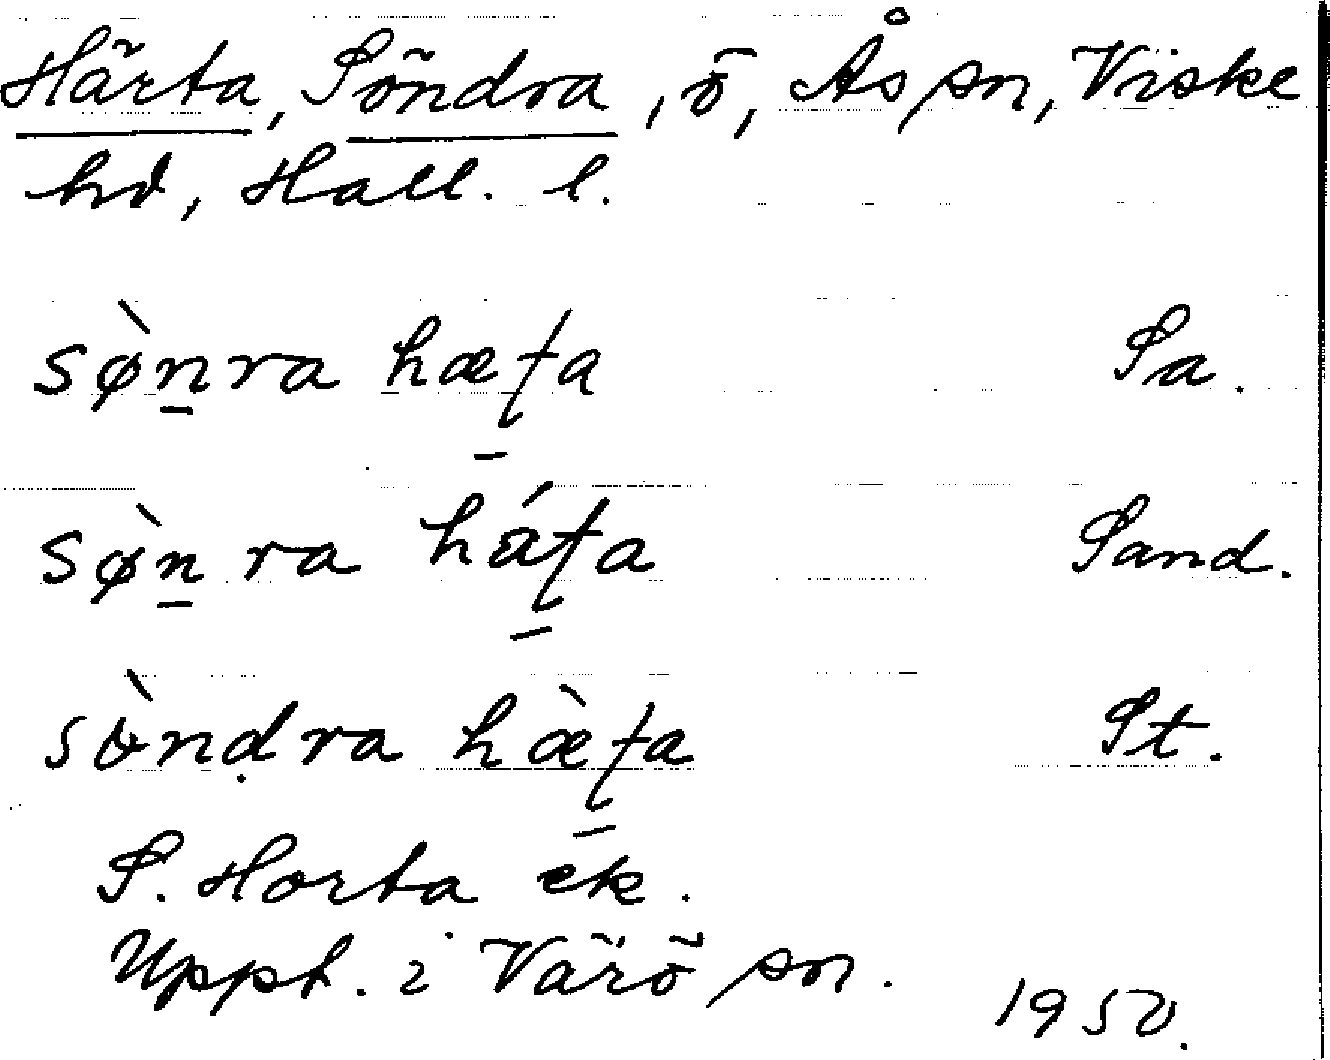 Härta, Söndra, ö, Ås sn, Viske
hd, Hall. l.
sø̀n̲ra hæʈ̲a Sa.
sø̀n̲ra háʈ̲a Sand.
sònḍra hæ̀ʈ̲a St.
S. Horta ek.
Uppt. i Värö sn.
1950.